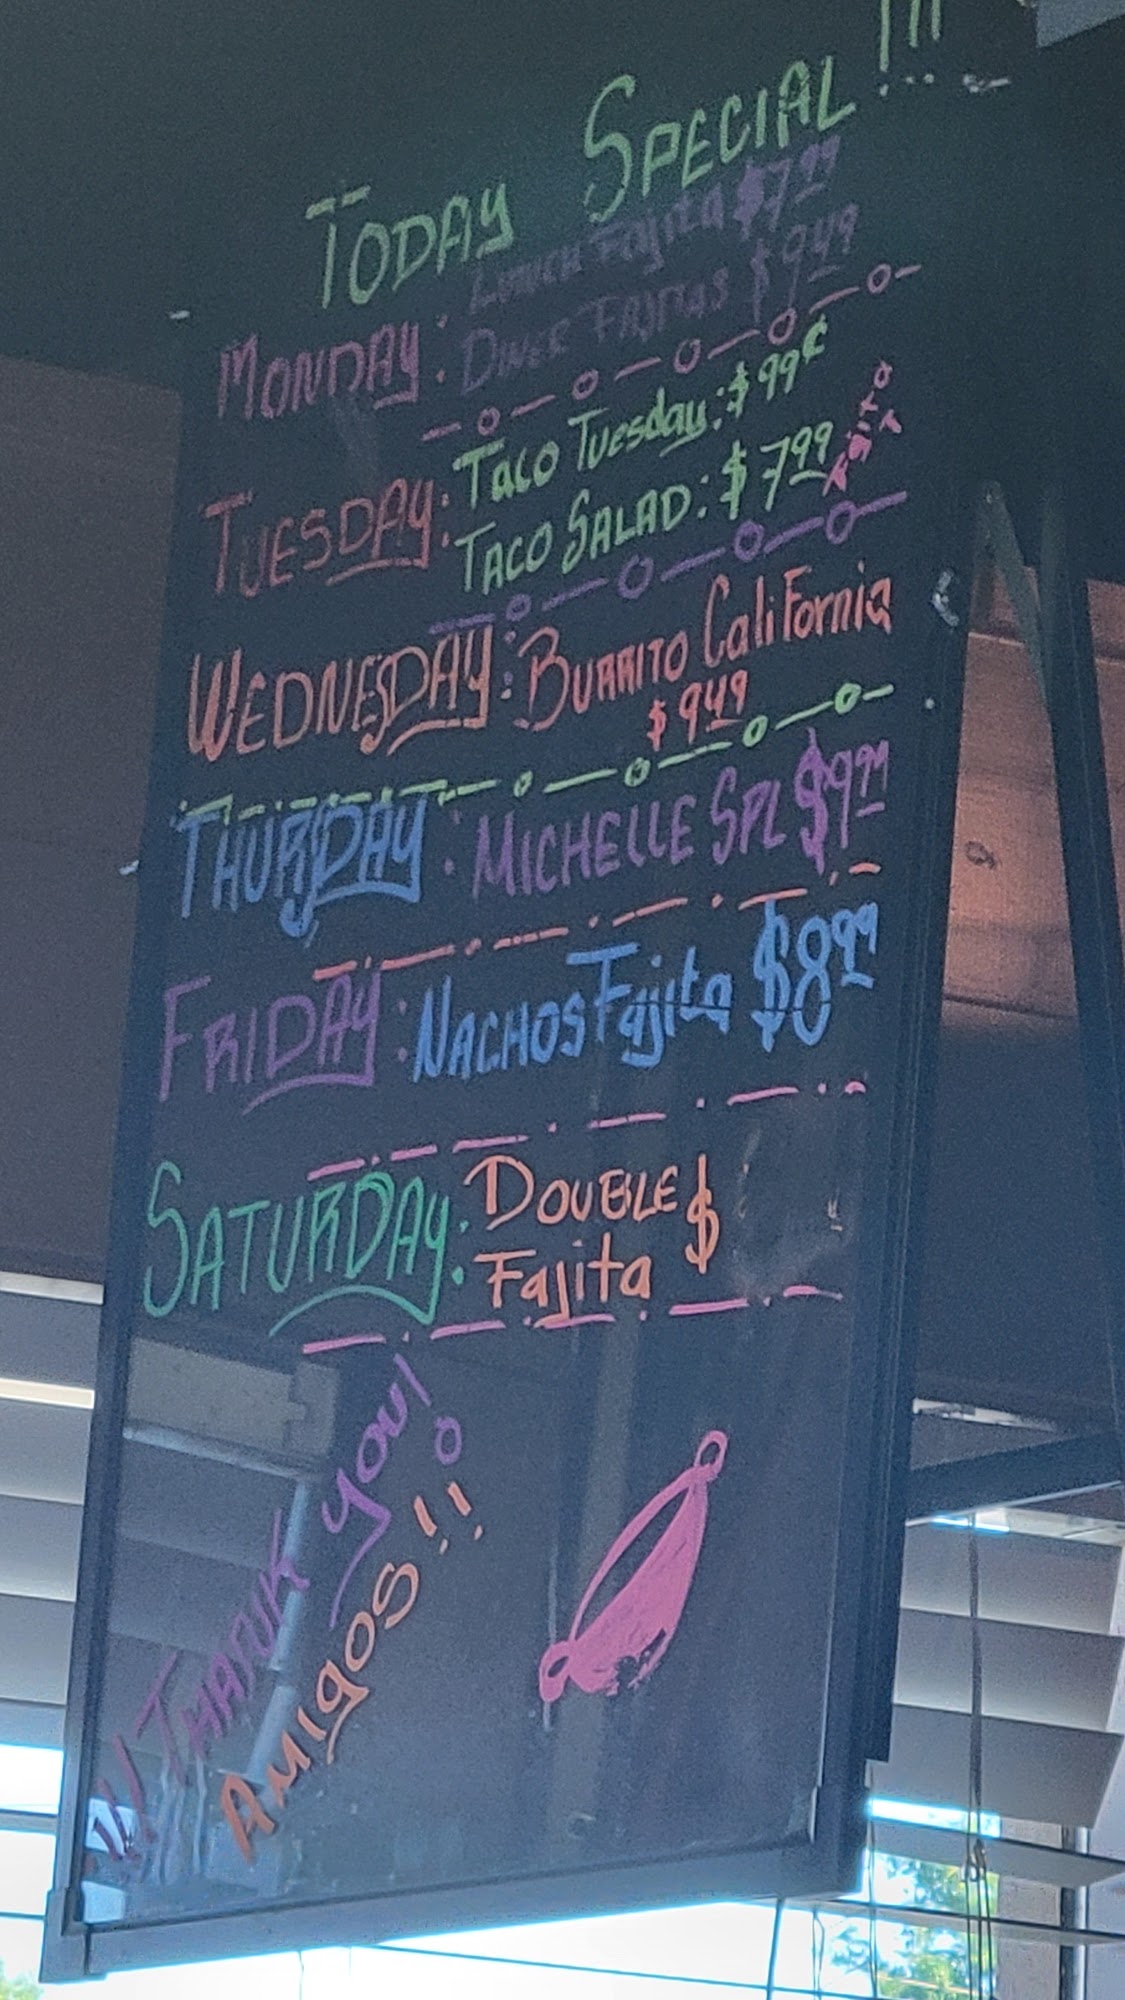 TODAY SPECIAL!!!
MONDAY: LUNCH Fajita $7.99
DINER FAJITAS $9.49
TUESDAY: TACO TUESDAY: $99¢
TACO SALAD: $7.99
WEDNESDAY: BURRITO CaliFornia
$9.49
THURSDAY: MICHELLE SPL $9.99
FRIDAY: NACHOS Fajita $8.99
SATURDAY: DOUBLE $
Fajita
THANK YOU!
AMIGOS!!